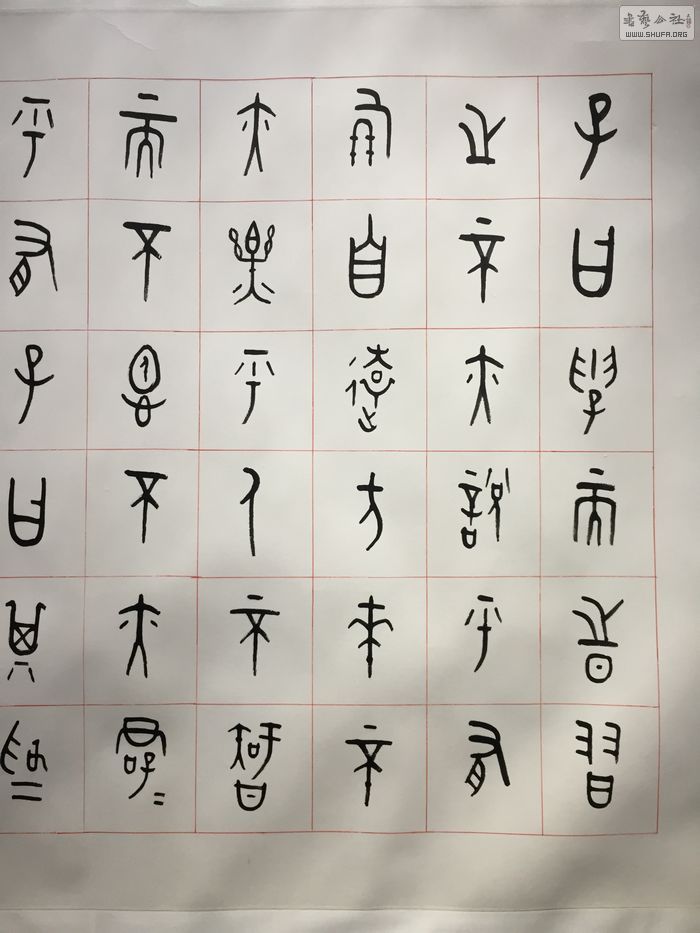 子曰學而時習
之不亦說乎有
朋自遠方來不
亦樂乎人不智
而不慍不亦君子
乎有子曰其為
書藝公社
WWW.SHUFA.ORG